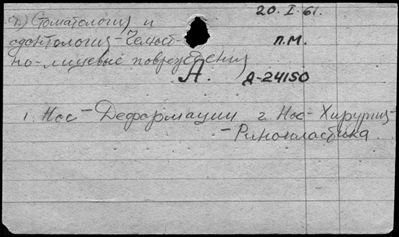 20.I.61.
2) Стоматология и
одонтология - Челюст-
но-лицевые повреждения
п.м.
А.
Д-24150
1. Нос - Деформации 2. Нос - Хирургия -
- Ринопластика